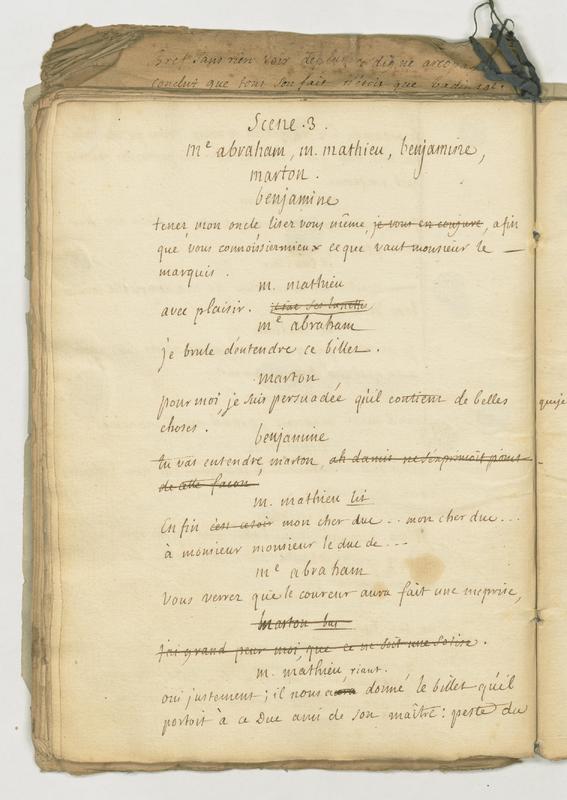 Bref sans rien voir de plus, ce digne
conclut que tout son fait n'étoit que badinage.
Scene .3.
me abraham, m. mathieu, benjamine,
marton.
benjamine
tenez mon oncle lisez vous même, je vous en conjure, afin
que vous connoissiez mieux ce que vaut monsieur le
marquis.
m. mathieu
avec plaisir.
me abraham
je brule d'entendre ce billet.
marton
pour moi, je suis persuadée qu'il contient de belles
choses.
benjamine
tu vas entendre, marton, ah damis ne s'exprimoit point
de cette facon
m. mathieu lit
Enfin c'est ce soir mon cher duc .. mon cher duc ...
à monsieur monsieur le duc de ...
me abraham
vous verrez que le coureur aura fait une meprise,
marton bas
j'ai grand peur moi, que ce ne soit une sotise.
m. mathieu, riant.
oui justement; il nous a donné le billet qu'il
portoit à ce Duc ami de son maître: peste du
que je